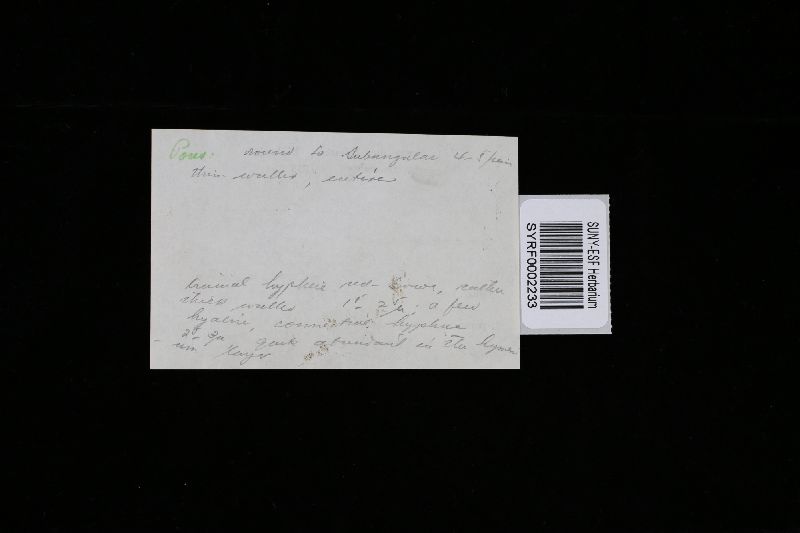 Pores: round to subangular 4-5/mm
thin walled, entire
tramal hyphae red-brown, rather
thick walled a few
hyaline, connective hyphae
quite abundant in the hymen
ium layer
SUNY-ESF Herbarium
SYRF0002233